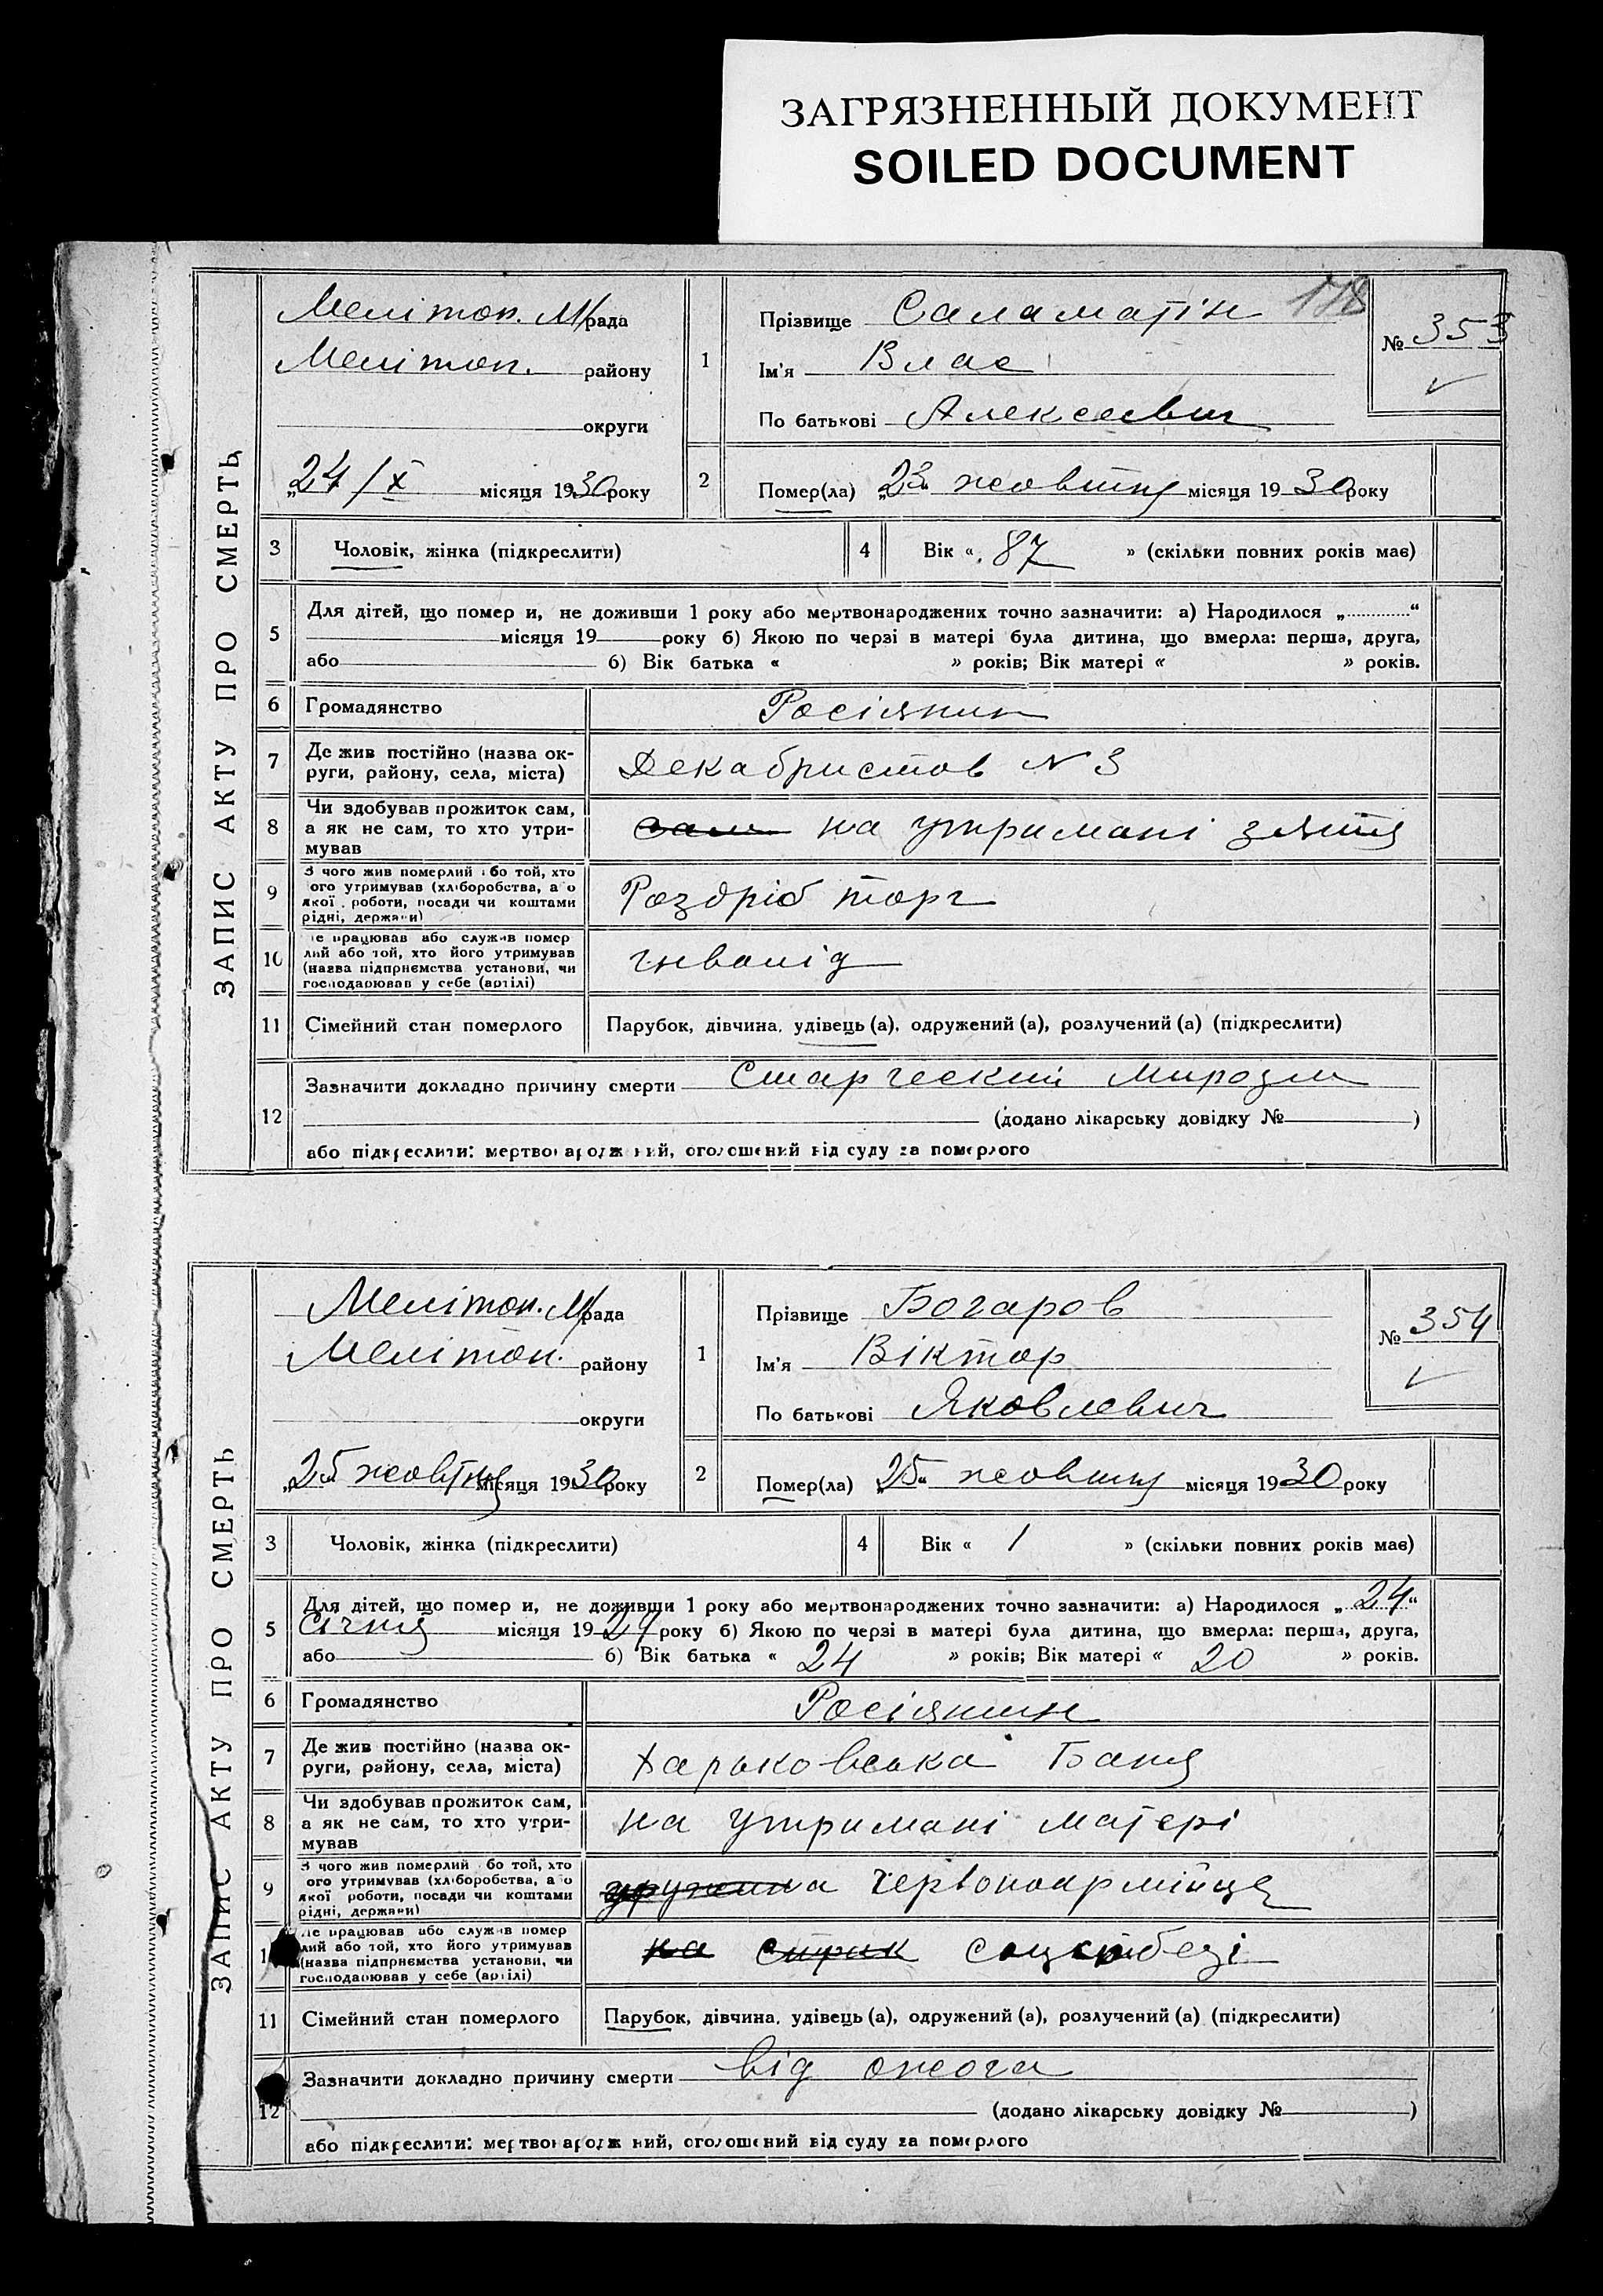 ЗАГРЯЗНЕННЫЙ ДОКУМЕНТ
SOILED DOCUMENT
ЗАПИС АКТУ ПРО СМЕРТЬ
Мелітоп. М/рада
Мелітоп. району
округи
„24/X місяця 1930 року
1
Прізвище Саламатін
Ім'я Влас
По батькові Алексеевич
118
№ 353
2
Помер(ла) „23" жовтня місяця 1930 року
3 Чоловік, жінка (підкреслити)
4 Вік « 87 » (скільки повних років має)
5
Для дітей, що помер и, не доживши 1 року або мертвонароджених точно зазначити: а) Народилося „ “
місяця 19 року б) Якою по черзі в матері була дитина, що вмерла: перша, друга,
або б) Вік батька « » років; Вік матері « » років.
6 Громадянство Росіянин
7 Де жив постійно (назва ок-
руги, району, села, міста) Декабристов N 3
8 Чи здобував прожиток сам,
а як не сам, то хто утри-
мував сам на утримані зятя
9 З чого жив померлий або той, хто
ого утримував (хліборобства, а о
якої роботи, посади чи коштами
рідні, держави) Роздріб торг
10 е працював або служив помер
лий або той, хто його утримував
(назва підприємства установи, чи
господарював у себе (артілі) інвалід
11 Сімейний стан померлого Парубок, дівчина, удівець (а), одружений (а), розлучений (а) (підкреслити)
12
Зазначити докладно причину смерти Старческий Мирозм
(додано лікарську довідку № )
або підкреслити: мертвонароджений, оголошений від суду за померлого
ЗАПИС АКТУ ПРО СМЕРТЬ
Мелітоп. М/рада
Мелітоп. району
округи
„25 жовтня місяця 1930 року
1
Прізвище Богаров
Ім'я Віктор
По батькові Яковлевич
№ 354
2
Помер(ла) „25" жовтня місяця 1930 року
3 Чоловік, жінка (підкреслити)
4 Вік « 1 » (скільки повних років має)
5
Для дітей, що помер и, не доживши 1 року або мертвонароджених точно зазначити: а) Народилося „24“
Січня місяця 1929 року б) Якою по черзі в матері була дитина, що вмерла: перша, друга,
або б) Вік батька « 24 » років; Вік матері « 20 » років.
6 Громадянство Росіянин
7 Де жив постійно (назва ок-
руги, району, села, міста) Харьковська Баня
8 Чи здобував прожиток сам,
а як не сам, то хто утри-
мував на утримані матері
9 З чого жив померлий або той, хто
ого утримував (хліборобства, а о
якої роботи, посади чи коштами
рідні, держави) червоноармійця
1 е працював або служив помер
лий або той, хто його утримував
(назва підприємства установи, чи
господарював у себе (артілі) на
11 Сімейний стан померлого Парубок, дівчина, удівець (а), одружений (а), розлучений (а) (підкреслити)
12
Зазначити докладно причину смерти від ожога
(додано лікарську довідку № )
або підкреслити: мертвонароджений, оголошений від суду за померлого